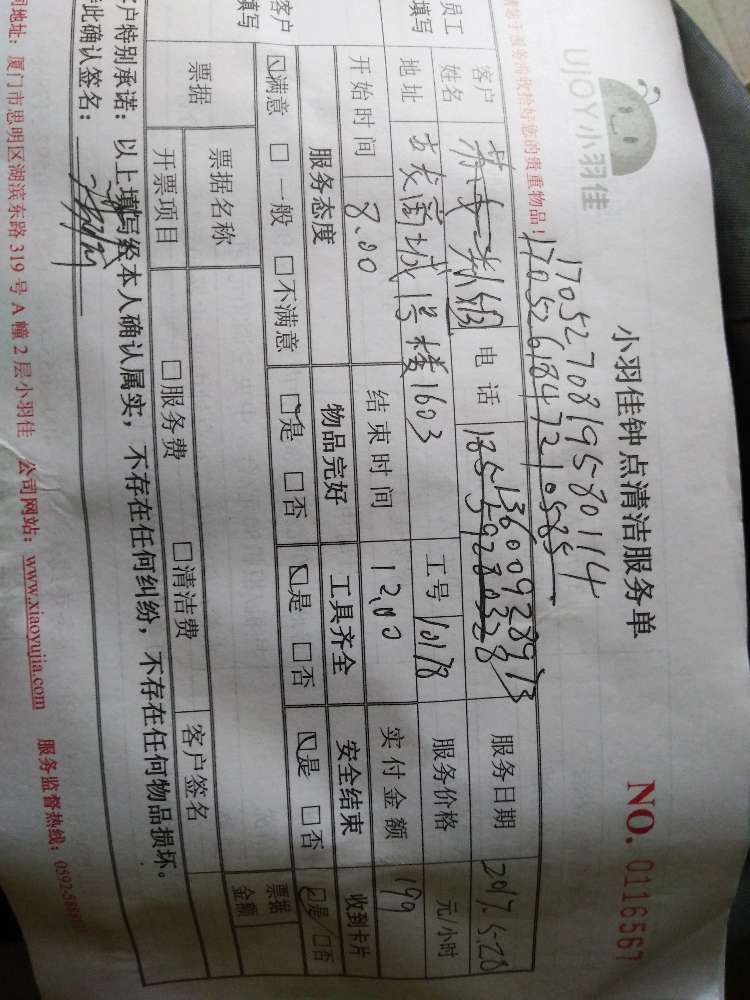 UJOY小羽佳
小羽佳钟点清洁服务单
NO. 0116567
1705270819580114
1705261847210585
您的贵重物品！
员工填写
客户姓名 电话 13600928973 服务日期 2017.5.28
18559280328
地址 1号楼1603 工号 10178 服务价格 元/小时
开始时间 8.00 结束时间 12.00 实付金额 199
客户填写
服务态度 物品完好 工具齐全 安全结束 收到卡片
☑满意 □一般 □不满意 ☑是 □否 ☑是 □否 ☑是 □否 ☑是 □否
票据 票据名称 票据金额
开票项目 □服务费 □清洁费 客户签名
户特别承诺：以上填写经本人确认属实，不存在任何纠纷，不存在任何物品损坏。
此确认签名：
司地址：厦门市思明区湖滨东路 319 号 A 幢 2 层小羽佳 公司网站：www.xiaoyujia.com 服务监督热线：0592-